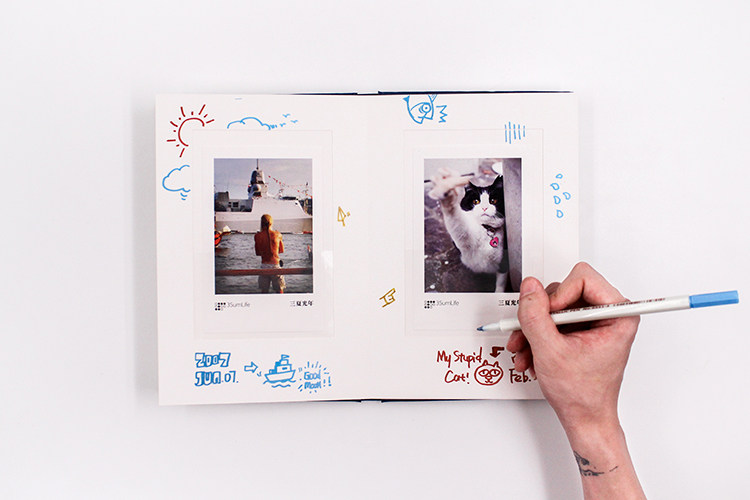 3SumLife 三夏光年
3SumLife 三夏
2007
JUN.07.
Good
Mook!!
My Stupid
Cat!
Feb.